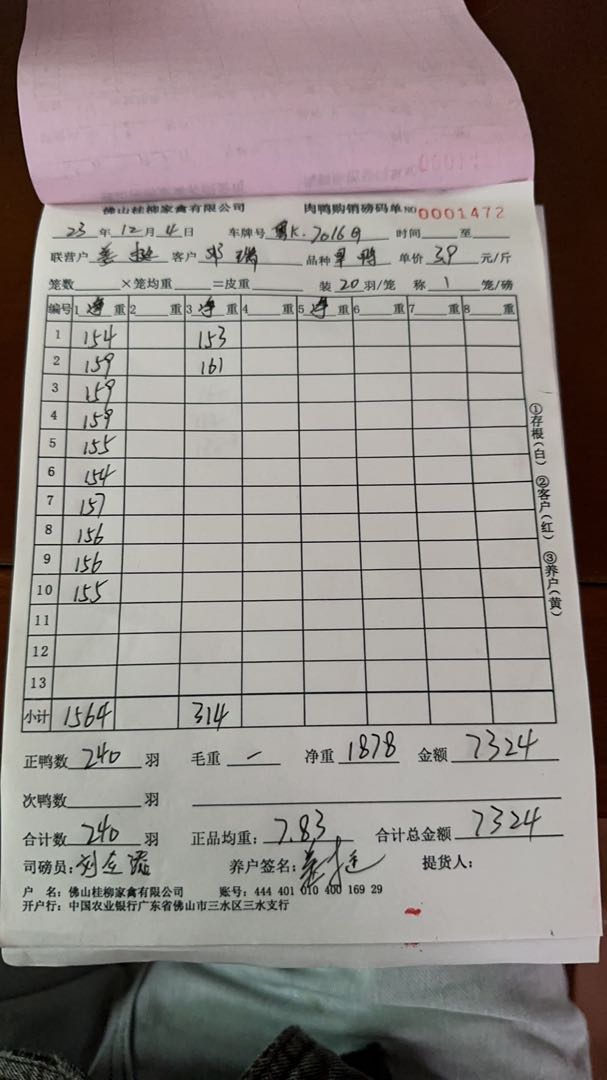 佛山桂柳家禽有限公司 肉鸭购销磅码单 NO 0001472
23 年 12 月 4 日 车牌号 粤K·7016 时间 至
联营户 客户 邓瑞 品种 鸭 单价 3.9 元/斤
笼数 ×笼均重 =皮重 装 20 羽/笼 称 1 笼/磅
编号 1 净 重 2 重 3 净 重 4 重 5 净 重 6 重 7 重 8 重
1 154 153
2 159 161
3 159
4 159
5 155
6 154
7 157
8 156
9 156
10 155
11
12
13
小计 1564 314
①存根(白) ②客户(红) ③养户(黄)
正鸭数 240 羽 毛重 一 净重 1878 金额 7324
次鸭数 羽
合计数 240 羽 正品均重: 7.83 合计总金额 7324
司磅员: 刘 养户签名: 提货人:
户 名: 佛山桂柳家禽有限公司 账号: 444 401 010 400 169 29
开户行: 中国农业银行广东省佛山市三水区三水支行